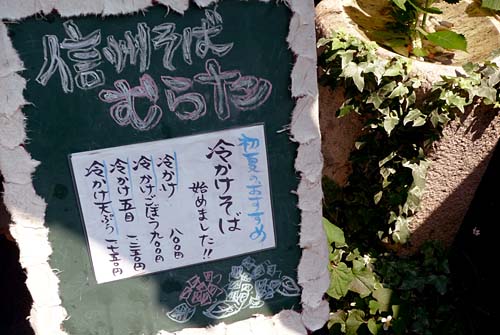 信州そば
むらた
初夏のおすすめ
冷かけそば
始めました!!
冷かけ 八〇〇円
冷かけごぼう 九〇〇円
冷かけ五目 一二五〇円
冷かけ天ぷら 一七五〇円